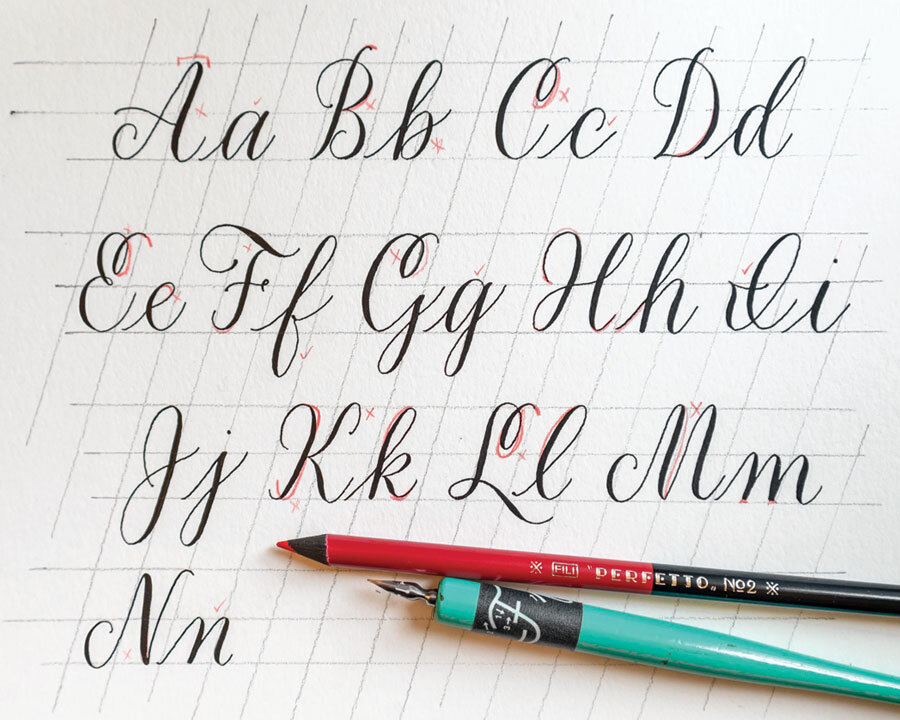 Aa Bb Cc Dd
Ee Ff Gg Hh Ii
Jj Kk Ll Mm
FILI "PERFETTO„ No2
Nn